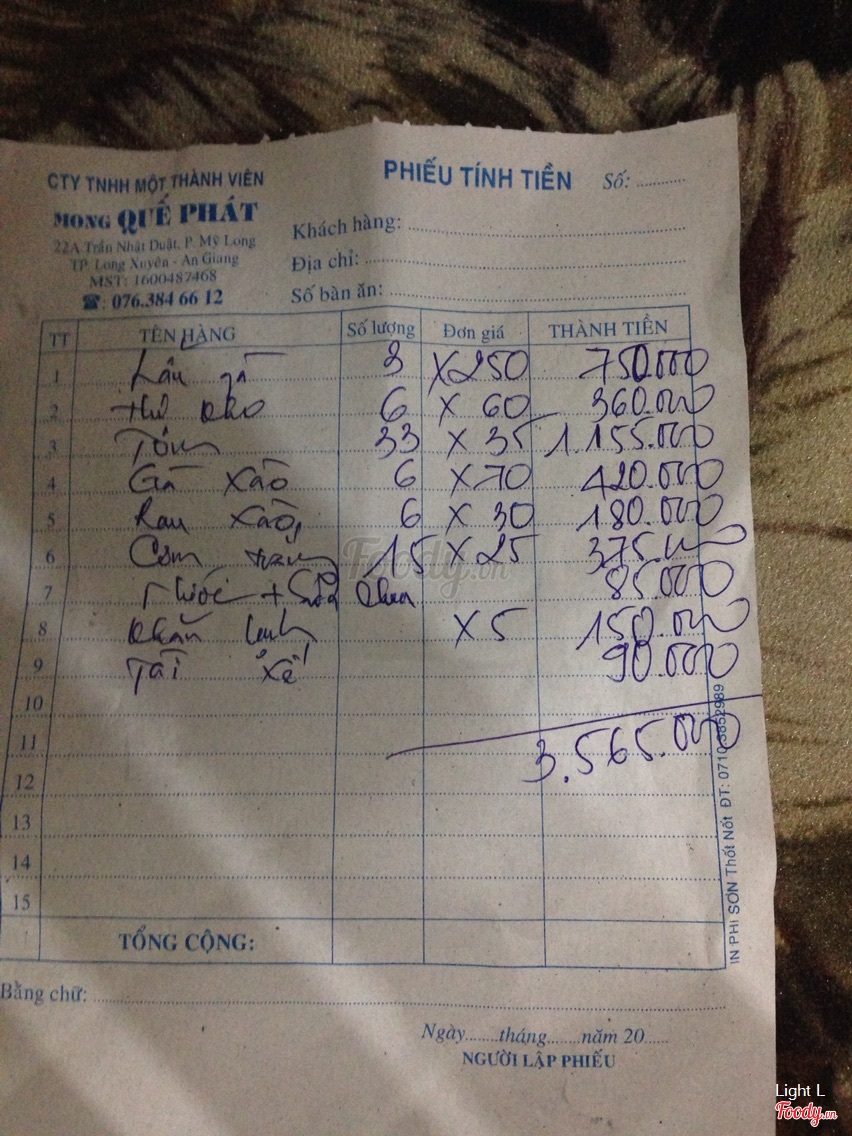 CTY TNHH MỘT THÀNH VIÊN
MONG QUẾ PHÁT
22A Trần Nhật Duật, P. Mỹ Long
TP. Long Xuyên - An Giang
MST: 1600487468
☎: 076.384 66 12
PHIẾU TÍNH TIỀN Số: ............
Khách hàng:
Địa chỉ:
Số bàn ăn:
TT TÊN HÀNG Số lượng Đơn giá THÀNH TIỀN
1 Lẩu gà 3 x 250 750.000
2 Thịt kho 6 x 60 360.000
3 Tôm 33 x 35 1.155.000
4 Gà xào 6 x 70 420.000
5 Rau xào 6 x 30 180.000
6 Cơm trắng 15 x 25 375.000
7 Nước + Sữa chua 85.000
8 Khăn lạnh x 5 150.000
9 Tài xế 90.000
10
11 3.565.000
12
13
14
15
TỔNG CỘNG:
Bằng chữ:
Ngày.......tháng.......năm 20.....
NGƯỜI LẬP PHIẾU
IN PHI SƠN Thốt Nốt ĐT: 0710.3852989
Foody.vn
Light L
Foody.vn